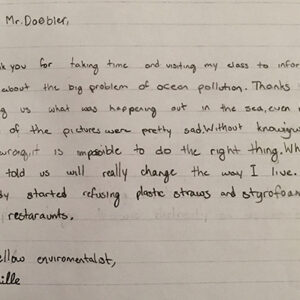 Mr. Doebler,
you for taking time and visiting my class to
about the big problem of ocean pollution. Thanks
us what was happening out in the sea, even
of the pictures were pretty sad. Without knowing
wrong, it is impossible to do the right thing.
told us will really change the way I live.
started refusing plastic straws and
restaraunts.
enviromentalist,